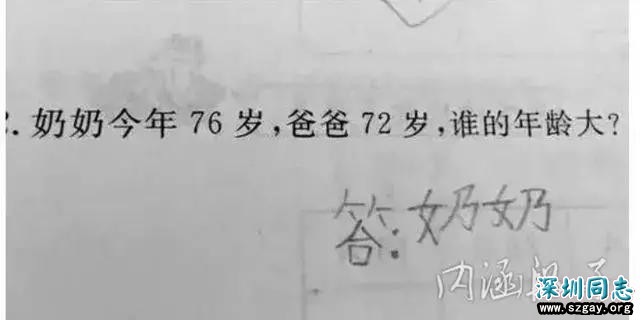 . 奶奶今年 76 岁,爸爸 72 岁,谁的年龄大?
答:奶奶
内涵段子
深圳同志
www.szgay.org